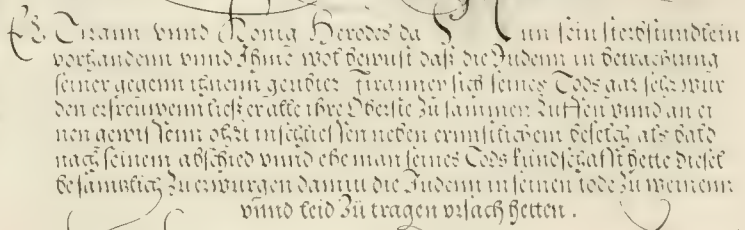 Es Tirann vnnd König Herodes da Nun sein sterbstundlein
vorhandenn vnnd Ihme wol bewust daß die Judenn in betrachtung
seiner gegenn ihnenn geübter Tiranney sich seines Tods gar sehr wür
den erfreuwenn ließ er alle ihre Oberste zu sammen ruffen vnnd an ei
nen gewissenn ohrt inschliessen neben ernnstlichem befelch als bald
nach seinem abschied vnnd ehe man seines Tods kundschafft hette diesel
be sämbtlich zu erwürgen damitt die Judenn in seinen tode zu weinenn
vnnd leid zu tragen vrsach hetten .